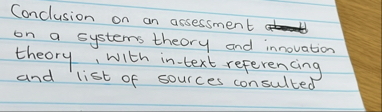 Conclusion on an assessment
on a systems theory and innovation
theory, with in-text referencing
and list of sources consulted